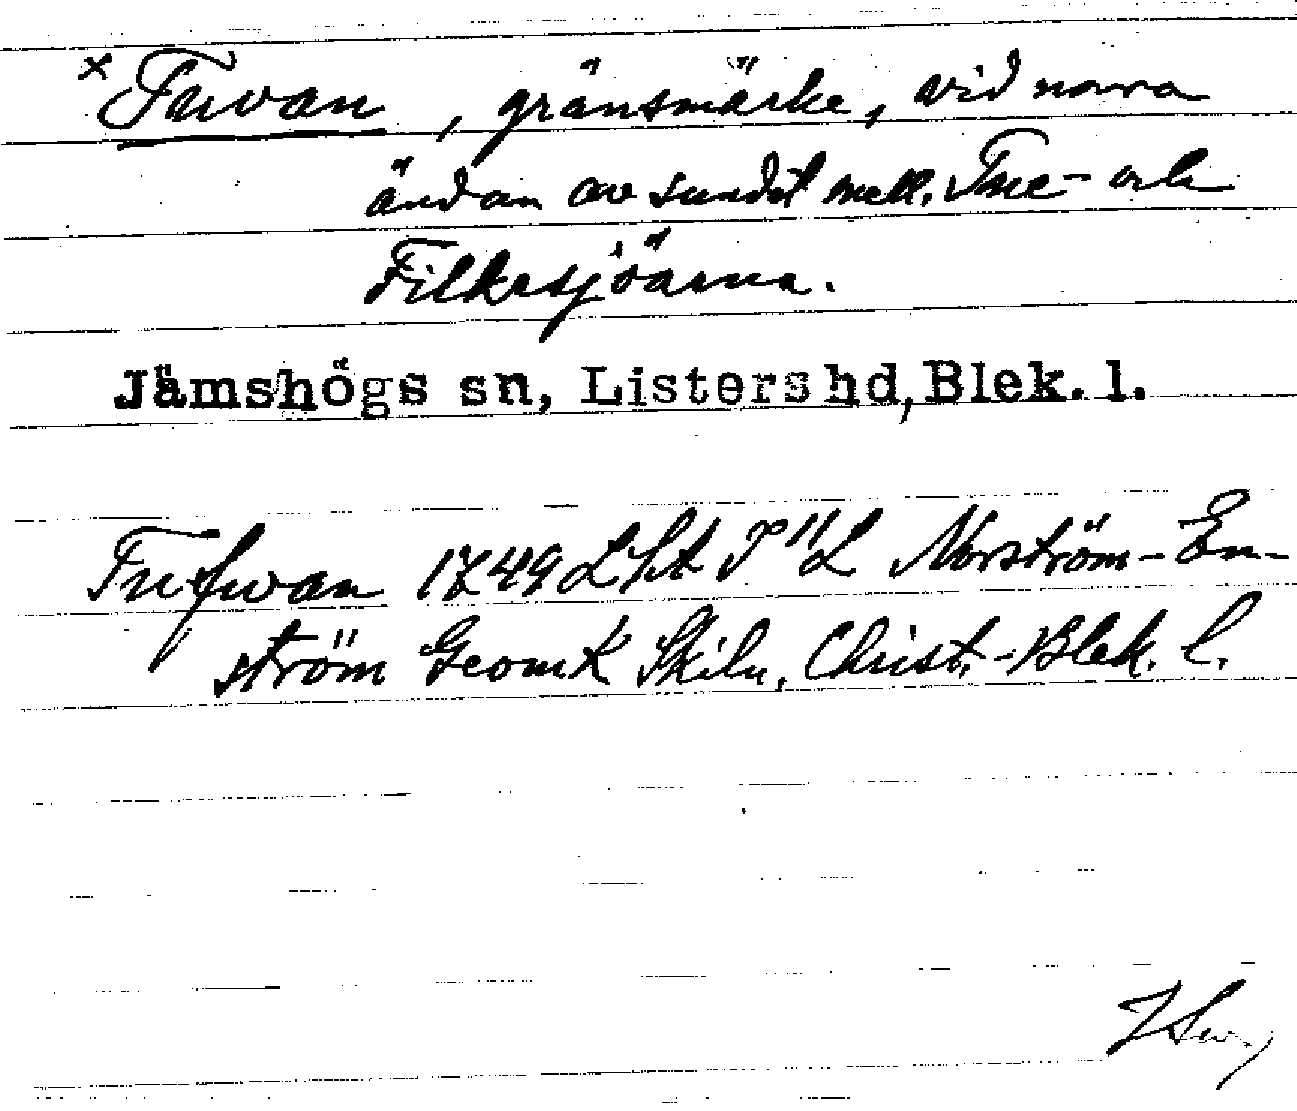 × Tuvan, gränsmärke, vid norra
ändan av sundet mell. Tue- och
Filkesjöarna.
Jämshögs sn, Listers hd, Blek. l.
Tufwan 1749 LSA Norström-En-
ström GeomK Skiln. Christ.-Blek. l.